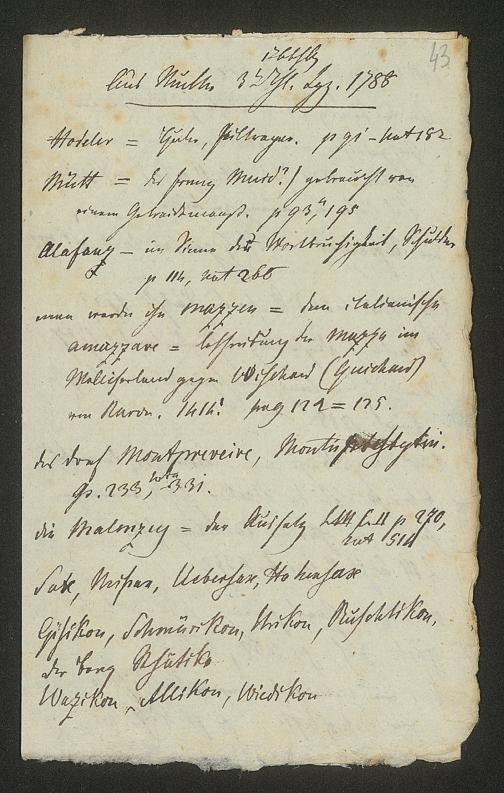 43
Aus Müller 3ter Thl. Lpz. 1788
Hodeler = p 91 – not 182
Mütt = der franz Muid?/ gebraucht von
einem Getreidemaaß. p 93, 195
Alafanz – im Sinne der Wortbrüchigkeit, Schulden
p 114, not 260
man werde ihn mazzen = dem italianischen
amazzare = der mazza im
Walliserland gegen Wischard (Guichard)
von Raron. 1414! pag 122 = 125.
das Dorf Montpreveire,
p. 233, not 331.
die Malenzey = der Aussatz p 270,
not 514
Sax, Misax, Uebersax, Hohensax
Gysikon, Schmärikon, Urikon, Ruschlikon,
der berg
Wezikon, Allikon, Wiedikon